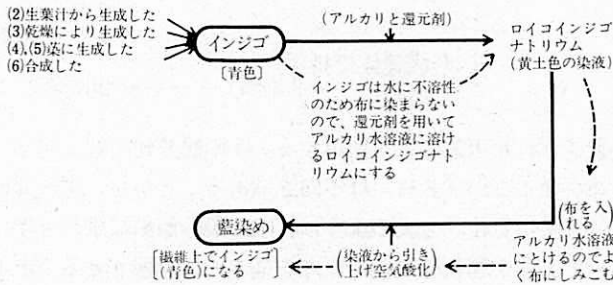 (2)生葉汁から生成した
(3)乾燥により生成した
(4),(5)菜に生成した
(6)合成した
インジゴ
〔青色〕
(アルカリと還元剤)
ロイコインジゴ
ナトリウム
(黄土色の染液)
インジゴは水に不溶性
のため布に染まらない
ので、還元剤を用いて
アルカリ水溶液に溶け
るロイコインジゴナト
リウムにする
(布を入れる)
アルカリ水溶液
にとけるのでよ
く布にしみこむ
(染液から引き
上げ空気酸化)
藍染め
[繊維上でインジゴ
(青色)になる]